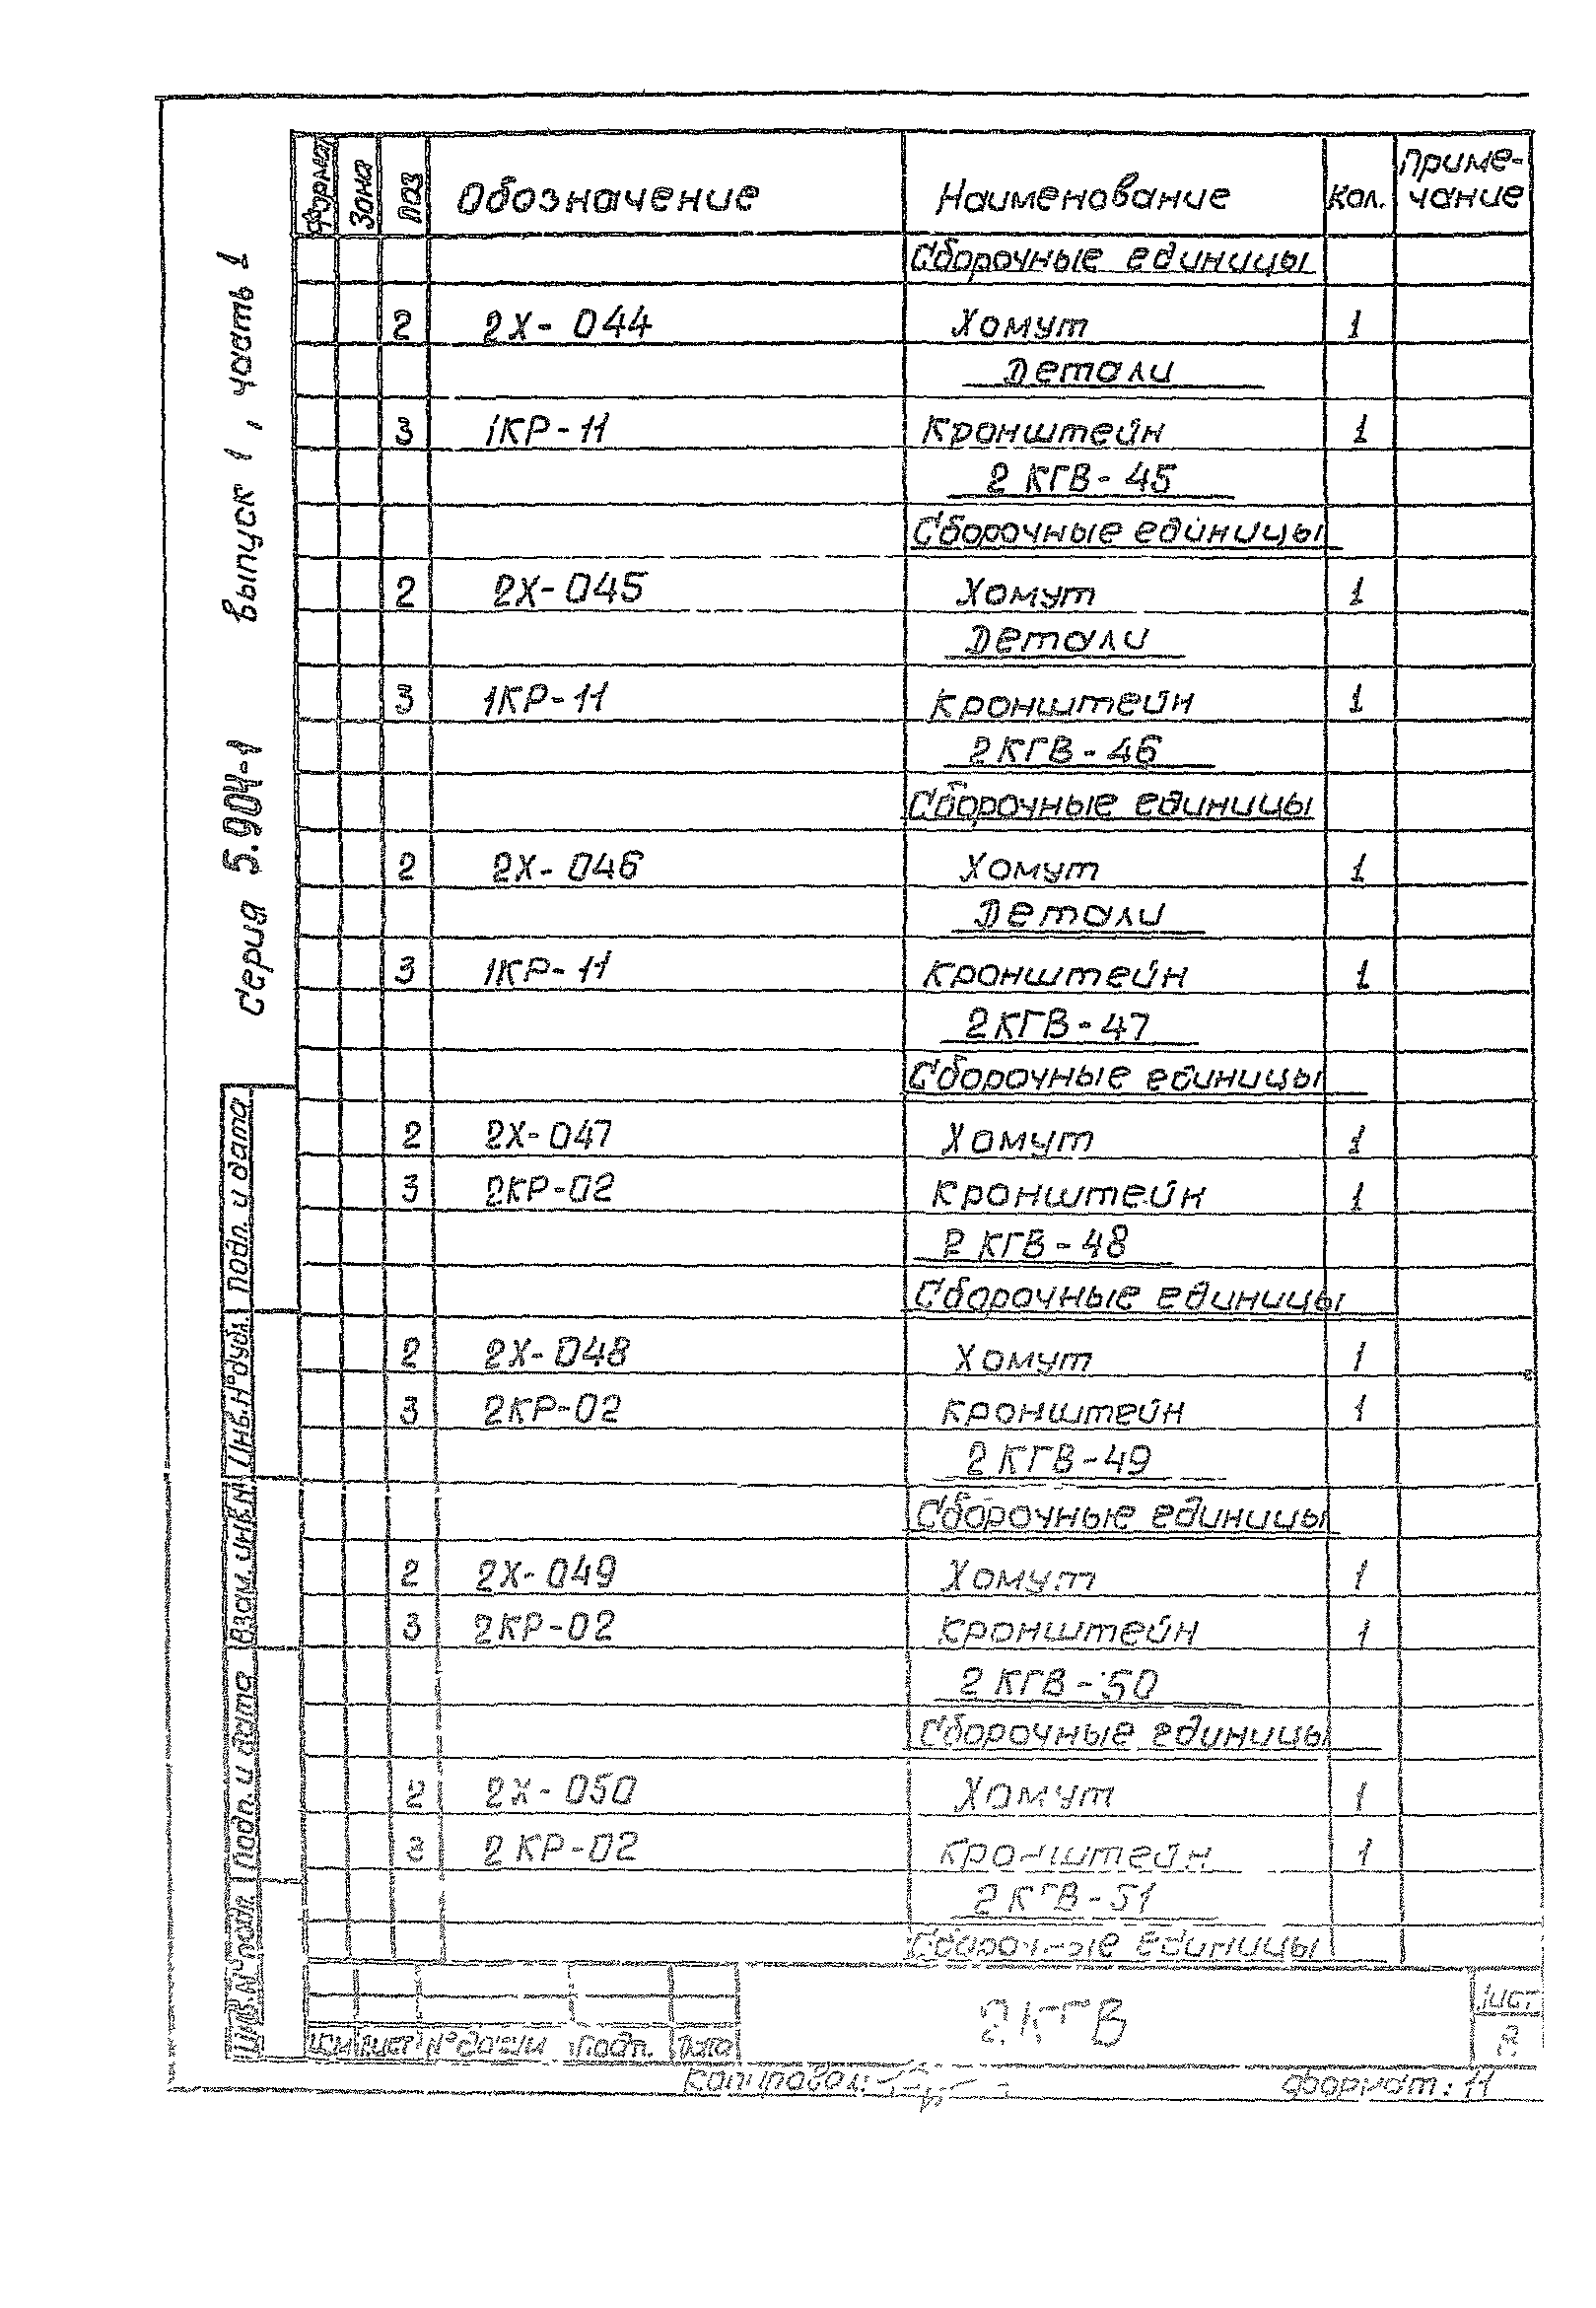 Формат Зона Поз Обозначение Наименование Кол. Приме-чание
Сборочные единицы
2 2Х-044 Хомут 1
Детали
3 1КР-11 Кронштейн 1
2КГВ-45
Сборочные единицы
2 2Х-045 Хомут 1
Детали
3 1КР-11 Кронштейн 1
2КГВ-46
Сборочные единицы
2 2Х-046 Хомут 1
Детали
3 1КР-11 Кронштейн 1
2КГВ-47
Сборочные единицы
2 2Х-047 Хомут 1
3 2КР-02 Кронштейн 1
2КГВ-48
Сборочные единицы
2 2Х-048 Хомут 1
3 2КР-02 Кронштейн 1
2КГВ-49
Сборочные единицы
2 2Х-049 Хомут 1
3 2КР-02 Кронштейн 1
2КГВ-50
Сборочные единицы
2 2Х-050 Хомут 1
3 2КР-02 Кронштейн 1
2КГВ-51
Сборочные единицы
Изм Лист № докум Подп. Дата
2КГВ
Лист
Копировал:
Формат: 11
Серия 5.904-1 Выпуск 1, часть 1
Инв.№ подл. Подп. и дата Взам. инв.№ Инв.№ дубл. Подп. и дата